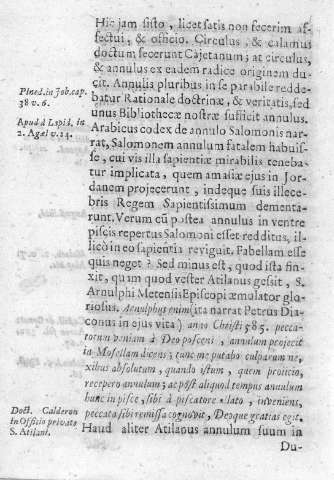 Hic jam sisto, licet satis non fecerim af-
fectui, & officio. Circulus, & calamus
doctum fecerunt Cajetanum; at circulus,
& annulus ex eadem radice originem du-
cit. Annulis pluribus in se parabile redde-
Pined. in Job. cap. 38 v. 6.
batur Rationale doctrinæ, & veritatis, sed
unus Bibliothecæ nostræ sufficit annulus.
Apud d Lapid. in 2. Agæi v. 24.
Arabicus codex de annulo Salomonis nar-
rat, Salomonem annulum fatalem habuis-
se, cui vis illa sapientiæ mirabilis teneba-
tur implicata, quem amasiæ ejus in Jor-
danem projecerunt, indeque suis illece-
bris Regem Sapientissimum dementa-
runt. Verum cũ postea annulus in ventre
piscis repertus Salomoni esset redditus, il-
licò in eo sapientia reviguit. Fabellam esse
quis neget? Sed minus est, quod ista fin-
xit, quam quod vester Atilanus gessit, S.
Arnulphi Metensis Episcopi æmulator glo-
riosus. Arnulphus enim (ita narrat Petrus Dia-
conus in ejus vita) anno Christi 585. pecca-
torum veniam à Deo poscens, annulum projecit
in Mosellam dicens; tunc me putabo culparum ne-
xibus absolutum, quando istum, quem projicio,
recepero annulum; ac post aliquod tempus annulum
hunc in pisce, sibi à piscatore allato, inveniens,
peccata sibi remissa cognovit, Deoque gratias egit.
Doct. Calderon in Officio privato S. Atilani.
Haud aliter Atilanus annulum suum in
Du-